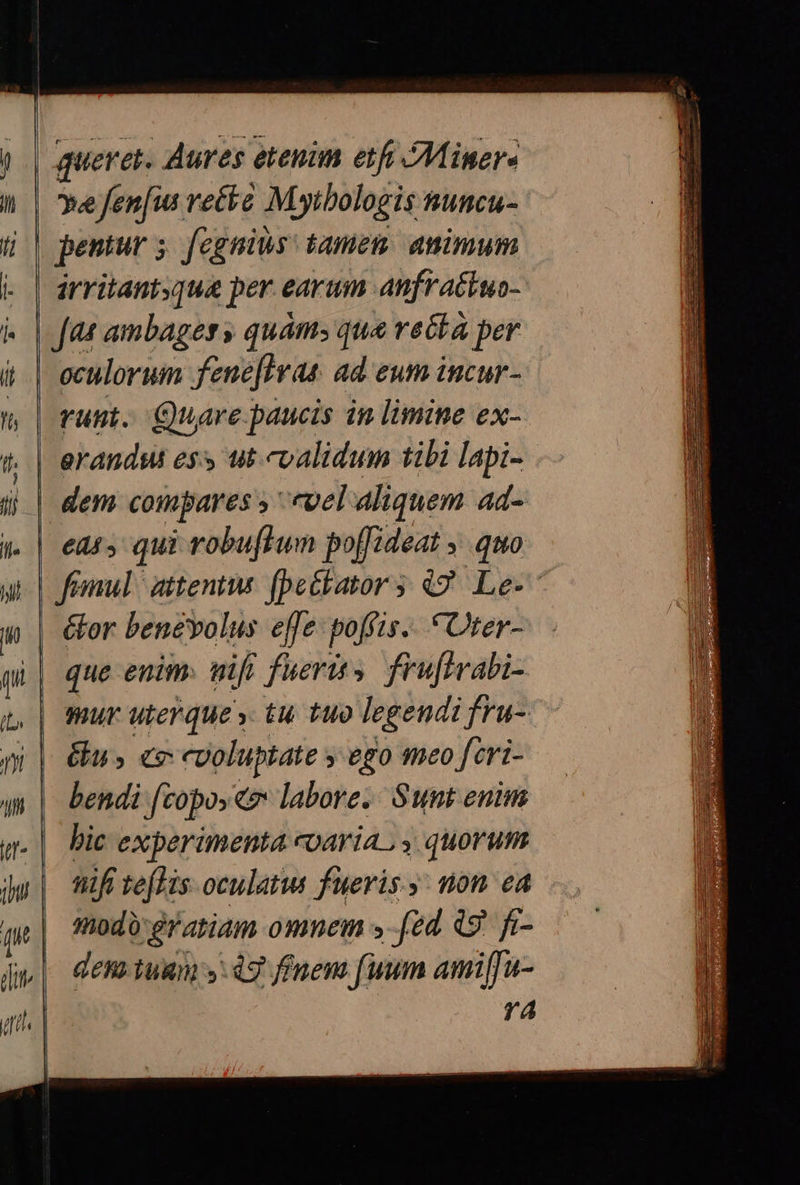 queret. Aures etenim etſi Miner-
væ ſenſus rectè Mythologis nuncu-
pentur; ſegniùs tamen animum
irritant, quæ per earum anfractuo-
ſas ambages, quàm, quæ rectà per
oculorum feneſtras ad eum incur-
runt. Quare paucis in limine ex-
orandus es, ut validum tibi lapi-
dem compares, vel aliquem ad-
eas, qui robuſtum poſſideat, quo
ſimul attentus ſpectator, & Le-
ctor benevolus eſſe poſſis. Uter-
que enim niſi fueris, fruſtrabi-
mur uterque, tu tuo legendi fru-
ctu, & voluptate, ego meo ſcri-
bendi ſcopo, & labore. Sunt enim
hic experimenta varia, quorum
niſi teſtis oculatus fueris, non ea
modò gratiam omnem, ſed & fi-
dem tuam, & finem ſuum amiſſu-
ra